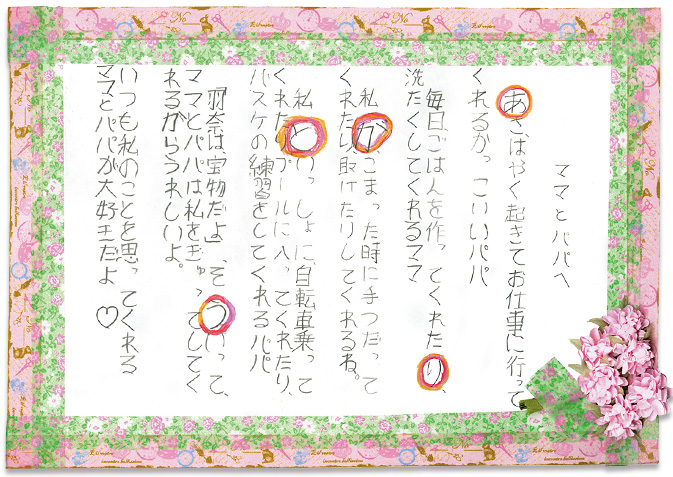 ママとパパへ
あさ、はやく起きてお仕事に行って
くれるかっこいいパパ
毎日、ごはんを作ってくれたり、
洗たくしてくれるママ
私が、こまった時に手つだって
くれたり助けたりしてくれるね。
私といっしょに、自転車乗って
くれたり、プールに入ってくれたり、
バスケの練習をしてくれるパパ
「羽奈は、宝物だよ」、そういって、
ママとパパは私をぎゅってしてく
れるからうれしいよ。
いつも私のことを思ってくれる
ママとパパが大好きだよ♡